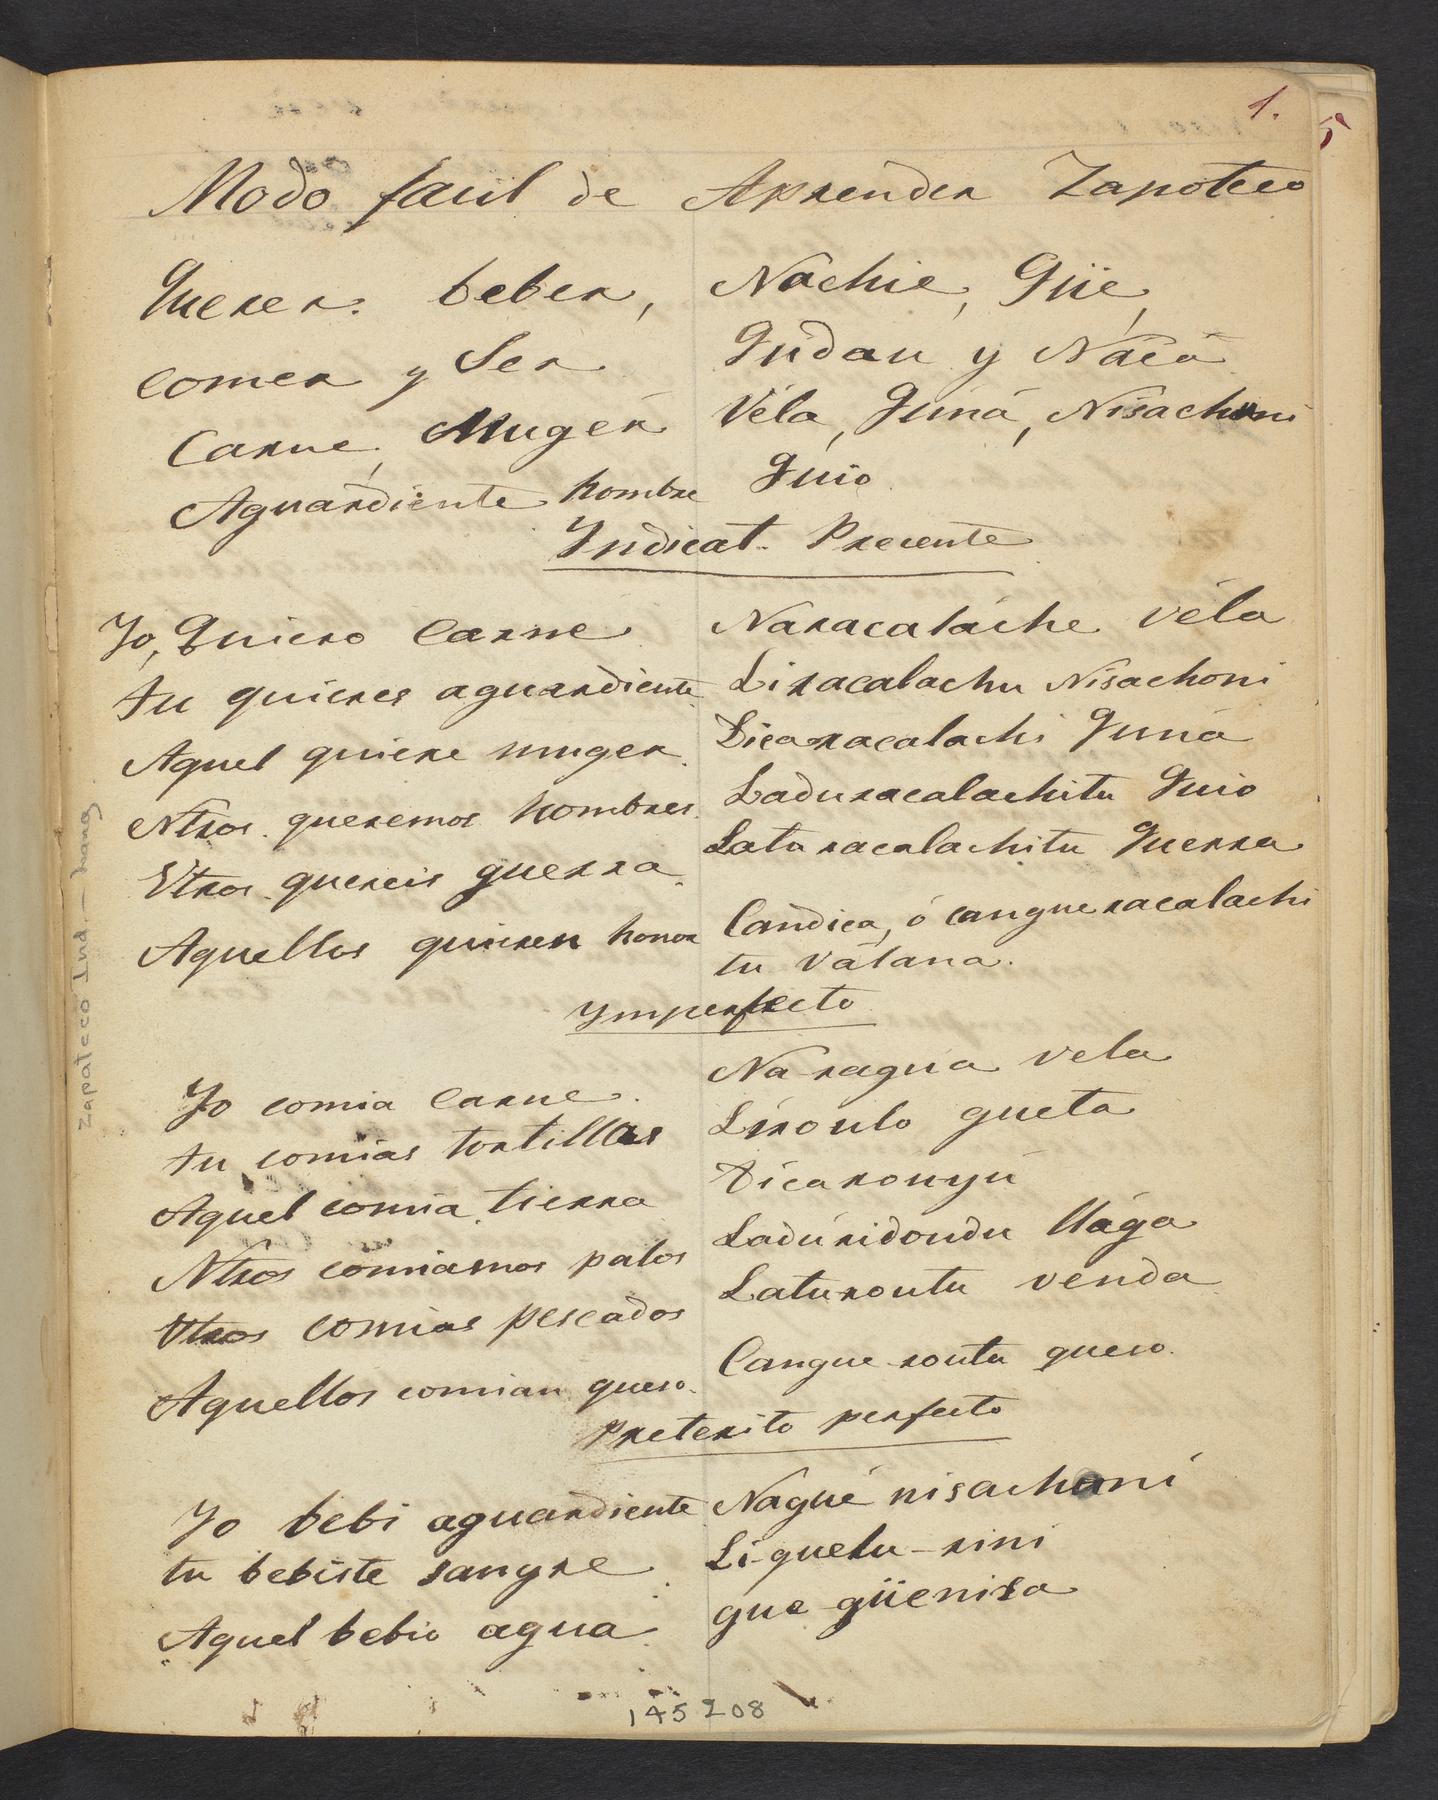 1.
5
Modo facil de Aprender Zapoteco
Querer. beber, Nachie, Güe,
comer y Ser Gúdau y Nácá
Carne, Muger Véla, Guná, Nisachoni
Aguardiente hombre Guio
Yndicat. Precente
Yo, Quiero Carne Naracaláche véla
tu quieres aguardiente Liracalachu Nisachoni
Aquel quiere muger. Dicaracalachi Guná
Ntros. queremos hombres. Laduracalachitu Guio
Vtros. quereis guerra. Laturacalachitu Guerra
Aquellos quieren honor Candica, ó cangueracalachi
tu válana.
Ymperfecto
Yo comia Carne. Na-ragua vela
tu comias tortillas Liroulo gueta
Aquel comia tierra Dicarouyú
Ntros comiamos palos Ladúridoudu llága
Vtros comias pescados Laturoutu venda
Aquellos comian queso. Cangue-routu queso.
Preterito perfecto
Yo bebi aguardiente Nagué nisachoní
tu bebiste sangre Li-guelu-rini
Aquel bebio agua gue-güenisa
145208
Zapateco Ind. — hang